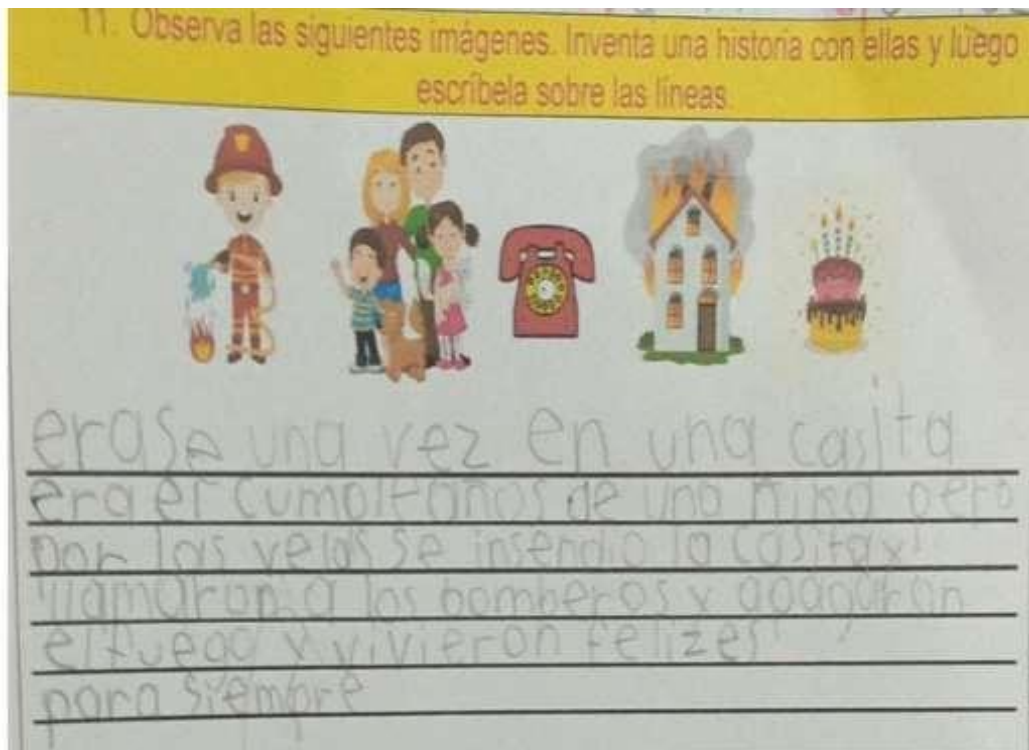 11. Observa las siguientes imágenes. Inventa una historia con ellas y luego
escríbela sobre las líneas.
erase una vez en una casita
era el cumpleaños de una niña pero
por las velas se insendio la casita y
llamaron a los bomberos y apagaron
el fuego y vivieron felizes
para siempre